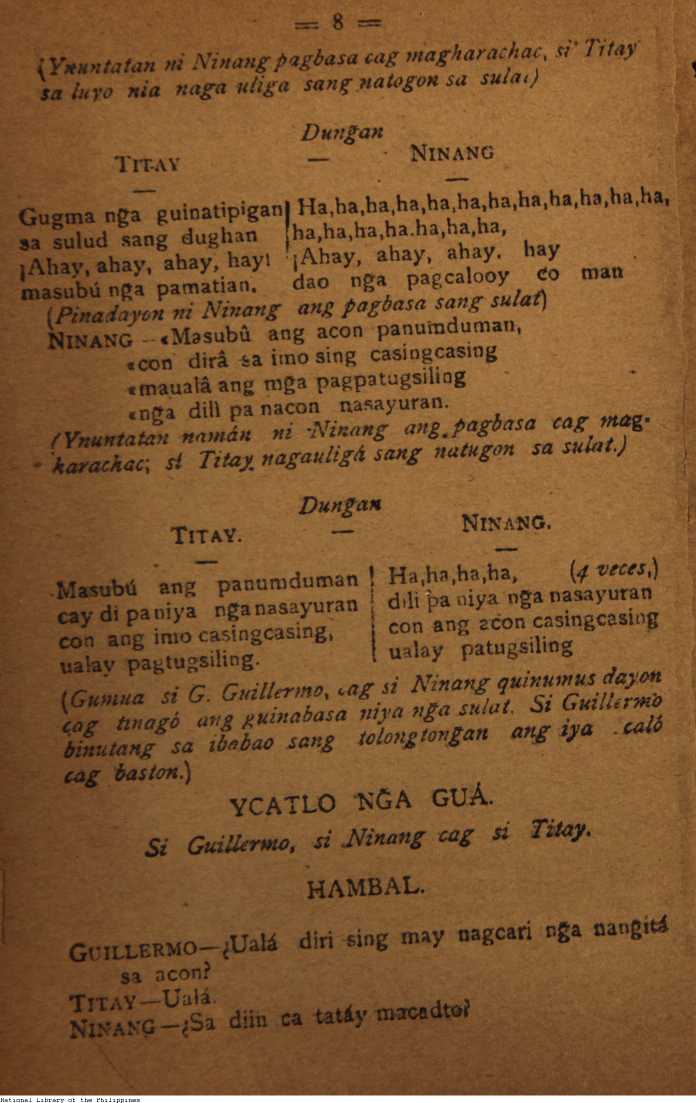 = 8 =
(Ynuntatan ni Ninang pagbasa cag magharachac, si Titay
sa luyo nia naga uliga sang natogon sa sulat)
Dungan
TITAY — NINANG
—
Gugma nga guinatipigan
sa sulud sang dughan
¡Ahay, ahay, ahay, hay!
masubú nga pamatian.
—
Ha,ha,ha,ha,ha,ha,ha,ha,ha,ha,ha,ha,
ha,ha,ha,ha.ha,ha,ha,
¡Ahay, ahay, ahay. hay
dao nga pagcalooy co man
(Pinadayon ni Ninang ang pagbasa sang sulat)
NINANG—«Masubû ang acon panumduman,
«con dirâ sa imo sing casingcasing
«maualâ ang mga pagpatugsiling
«nga dili pa nacon nasayuran.
(Ynuntatan namán ni Ninang ang pagbasa cag mag-
harachac; si Titay nagauligá sang natugon sa sulat.)
Dungan
TITAY. — NINANG.
—
Masubú ang panumduman
cay di pa niya nga nasayuran
con ang imo casingcasing,
ualay pagtugsiling.
—
Ha,ha,ha,ha, (4 veces,)
dili pa niya nga nasayuran
con ang acon casingcasing
ualay patugsiling
(Gumua si G. Guillermo, cag si Ninang quinumus dayon
cag tinagó ang guinabasa niya nga sulat. Si Guillermo
binutang sa ibabao sang tolongtongan ang iya caló
cag baston.)
YCATLO NGA GUÁ.
Si Guillermo, si Ninang cag si Titay.
HAMBAL.
GUILLERMO—¿Ualá diri sing may nagcari nga nangitá
sa acon?
TITAY—Ualá.
NINANG—¿Sa diin ca tatáy macadto?
National Library of the Philippines